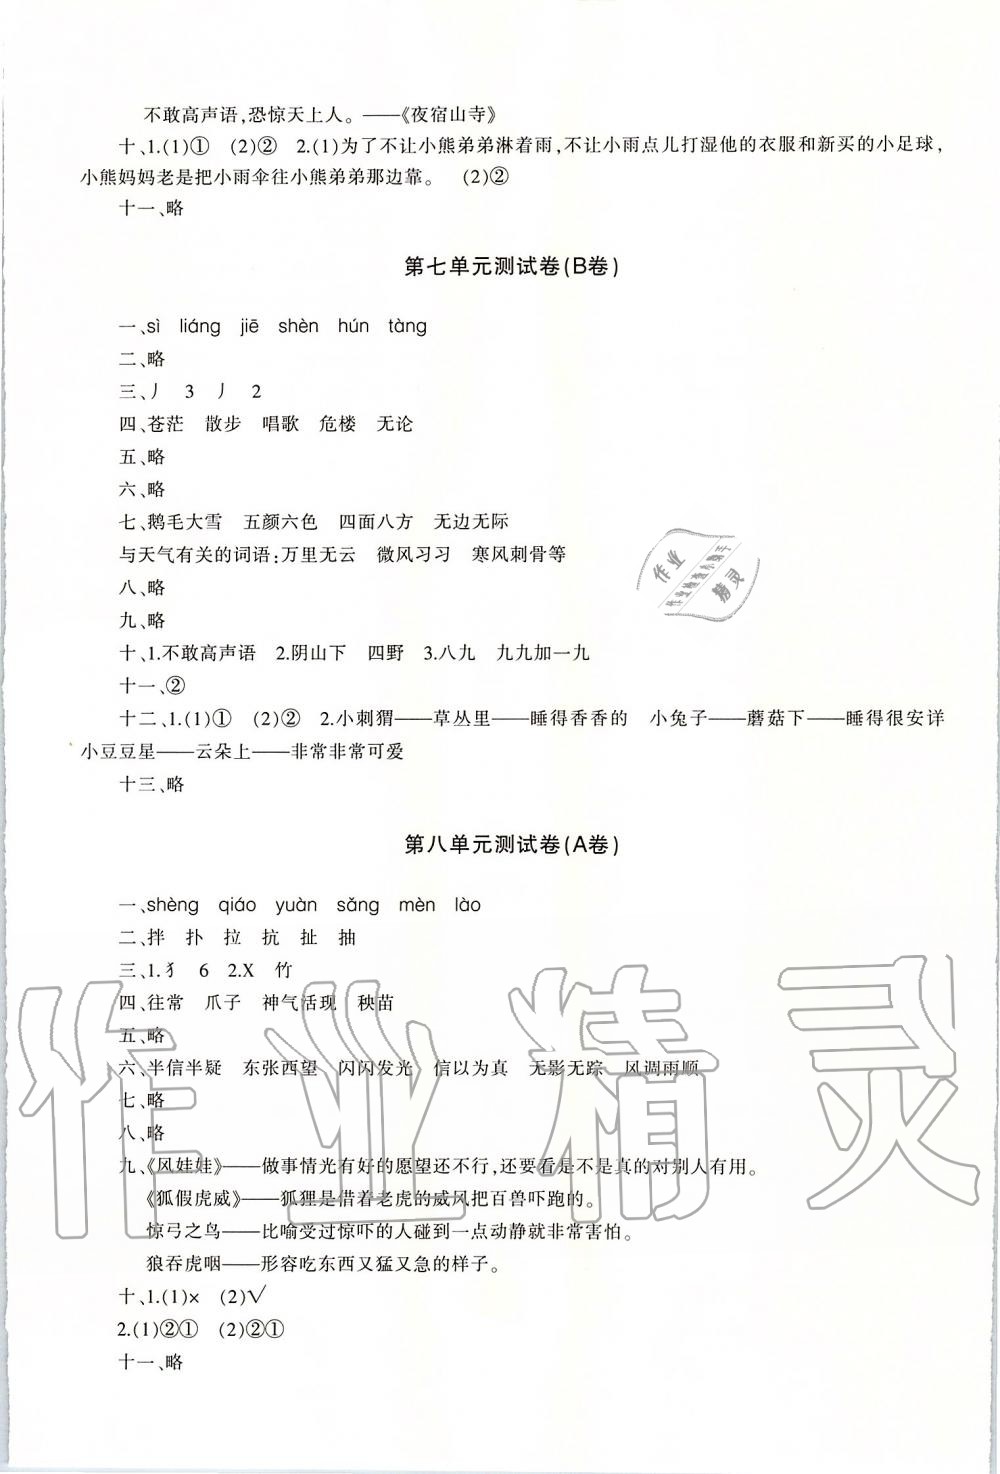 不敢高声语,恐惊天上人。——《夜宿山寺》
十、1.(1)① (2)② 2.(1)为了不让小熊弟弟淋着雨,不让小雨点儿打湿他的衣服和新买的小足球,
小熊妈妈老是把小雨伞往小熊弟弟那边靠。 (2)②
十一、略
第七单元测试卷(B卷)
一、sì liáng jiē shèn hún tàng
二、略
三、丿 3 丿 2
四、苍茫 散步 唱歌 危楼 无论
五、略
六、略
七、鹅毛大雪 五颜六色 四面八方 无边无际
与天气有关的词语:万里无云 微风习习 寒风刺骨等
八、略
九、略
十、1.不敢高声语 2.阴山下 四野 3.八九 九九加一九
十一、②
十二、1.(1)① (2)② 2.小刺猬——草丛里——睡得香香的 小兔子——蘑菇下——睡得很安详
小豆豆星——云朵上——非常非常可爱
十三、略
第八单元测试卷(A卷)
一、shèng qiáo yuàn sǎng mèn lào
二、拌 扑 拉 抗 扯 抽
三、1.犭 6 2.X 竹
四、往常 爪子 神气活现 秧苗
五、略
六、半信半疑 东张西望 闪闪发光 信以为真 无影无踪 风调雨顺
七、略
八、略
九、《风娃娃》——做事情光有好的愿望还不行,还要看是不是真的对别人有用。
《狐假虎威》——狐狸是借着老虎的威风把百兽吓跑的。
惊弓之鸟——比喻受过惊吓的人碰到一点动静就非常害怕。
狼吞虎咽——形容吃东西又猛又急的样子。
十、1.(1)× (2)√
2.(1)②① (2)②①
十一、略
作业
精灵
作业精灵